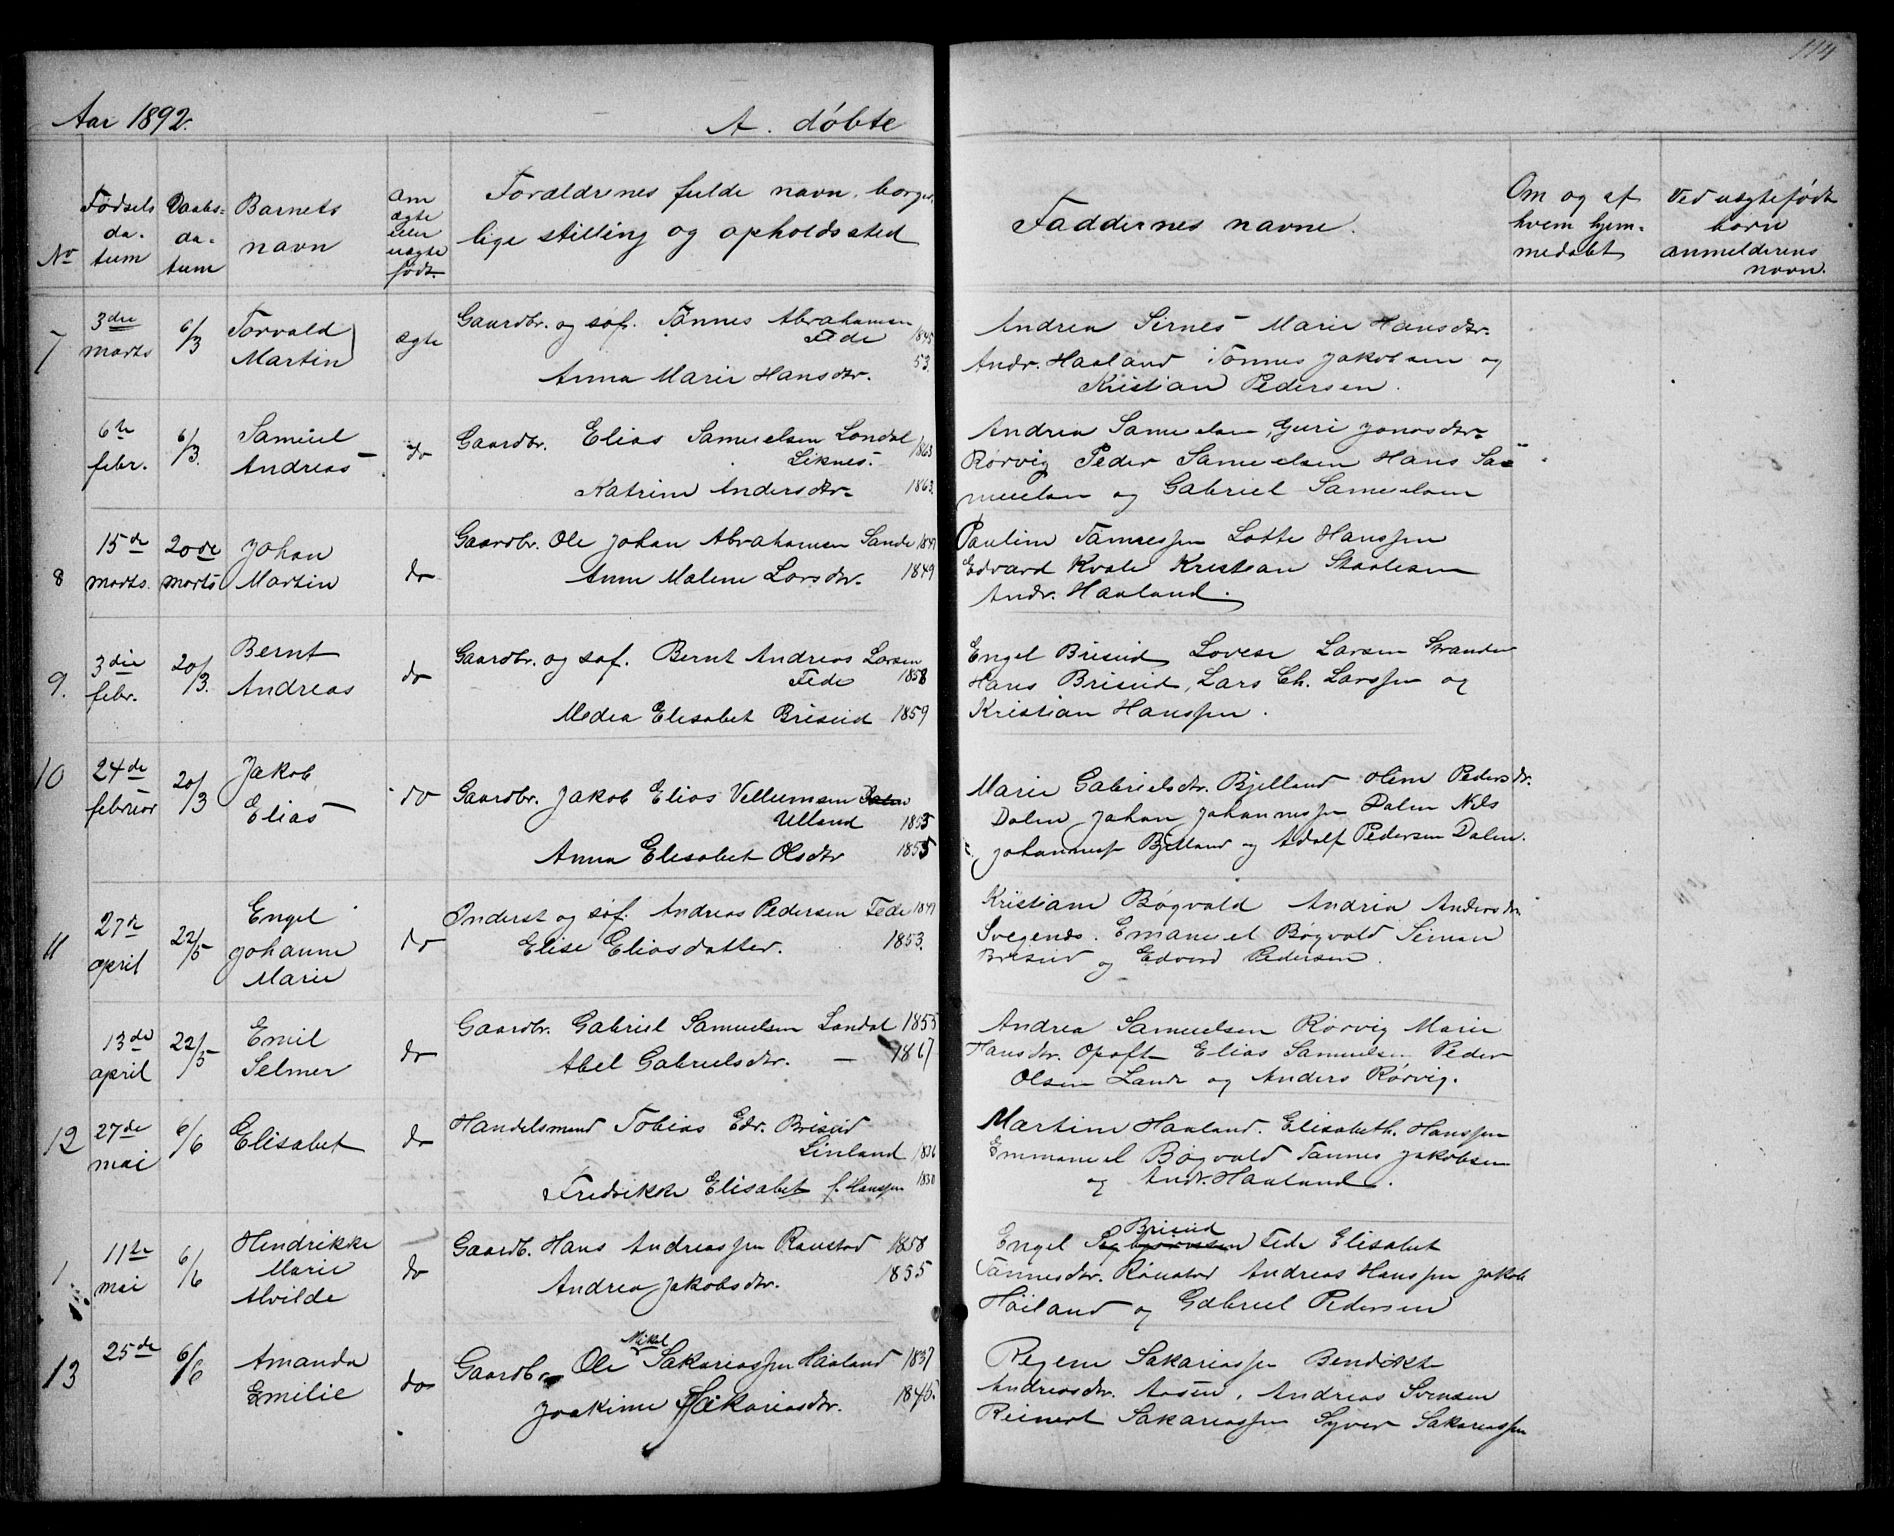 114
Aar 1892.
A. døbte
No
Fødsels
da-
tum
Daabs-
da-
tum
Barnets
navn
Om
ægte
eller
uægte
født.
Forældrenes fulde navn, borger-
lige stilling og opholdssted
Faddernes navne.
Om og af
hvem hjem-
medøbt
Ved uægtefødt
barn
anmelderens
navn.
7
3die
marts
6/3
Torvald
Martin
ægte
Gaardbr. og søf. Tønnes Abrahamsen
Fede 1845
Anna Marie Hansdtr. 53
Andrea Sirnes Marie Hansdtr.
Andr. Haaland Tønnes Jakobsen og
Kristian Pedersen.
6te
febr.
6/3.
Samuel
Andreas
do
Gaardbr. Elias Samuelsen Londal
Liknes. 1863
Katrine Andersdtr. 1863.
Andrea Samuelsen, Guri Jonasdtr.
Rørvig Peder Samuelsen Hans Sa-
muelsen og Gabriel Samuelsen
8
15de
marts.
20de
marts
Johan
Martin
do
Gaardbr. Ole Johan Abrahamsen Sande
Anne Malene Larsdtr. 1849
Pauline Tønnessen Lotte Hanssen
Edvard Kvale Kristian Staalesen
Andr. Haaland.
9.
3die
febr.
20/3.
Bernt
Andreas
do
Gaardbr. og søf. Bernt Andreas Larsen
Fede 1858
Medea Elisabet Briseid 1859
Engel Briseid, Lovise Larsen Stranden
Hans Briseid, Lars Ch. Larssen og
Kristian Hanssen.
10
24de
februar
20/3
Jakob
Elias
do
Gaardbr. Jakob Elias Vellumsen Dalen
Ulland 1855
Anna Elisabet Olsdtr 1855
Marie Gabrielsdtr. Bjelland Stine Pedersdtr.
Dalen Johan Johannessen Dalen Nils
Johanness. Bjelland og Adolf Pedersen Dalen.
11
27de
april
22/5
Engel
Johanne
Marie
do
Inderst og søf. Andreas Pedersen Fede
Elise Eliasdatter. 1853.
Kristiane Bøgvald Andrea Andersdtr.
Svegends. Emanuel Bøgvald Simon
Briseid og Edvard Pedersen.
13de
april
22/5
Emil
Selmer
do
Gaardbr. Gabriel Samuelsen Londal 1855
Abel Gabrielsdtr. — 1867
Andrea Samuelsen Rørvig Marie
Hansdtr. Opoft Elias Samuelsen Peder
Olsen Lande og Anders Rørvig.
12
27de
mai
6/6
Elisabet
do
Handelsmand Tobias Edv. Briseid
Linland 1836
Fredrikke Elisabet f. Hanssen 1850
Martine Haaland. Elisabeth. Hanssen
Emmanuel Bøgvald Tønnes Jakobsen
og Andr. Haaland.
1
11te
mai
6/6
Hendrikke
Marie
Alvilde
do
Gaardb. Hans Andreassen Raustad 1858
Andrea Jakobsdtr. 1855
Briseid
Engel Fede Elisabet
Tønnesdtr. Raustad Andreas Hanssen Jakob
Høiland og Gabriel Pedersen
13
25de
6/6
Amanda
Emilie
do
Mikal
Gaardbr. Ole Sakariassen Haaland 1837
Joakime Sakariasdtr. 1845.
Regine Sakariassen Bendikte
Andreasdtr. Aasen, Andreas Svensen
Reinert Sakariassen Syver Sakariassen